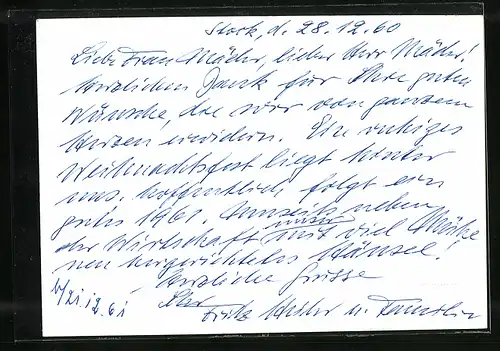 Stock, d. 28.12.60
Liebe Frau Mäder, lieber Herr Mäder!
Herzlichen Dank für Ihre guten
Wünsche, die wir von ganzem
Herzen erwidern. Ein ruhiges
Weihnachtsfest liegt hinter
uns. Hoffentlich folgt ein
gutes 1961. neben
der Wirtschaft unser mit viel
nen hergerichtetes Häusel!
Herzliche Grüsse
Ihr
Fritz u. Familie
b/21.12.61